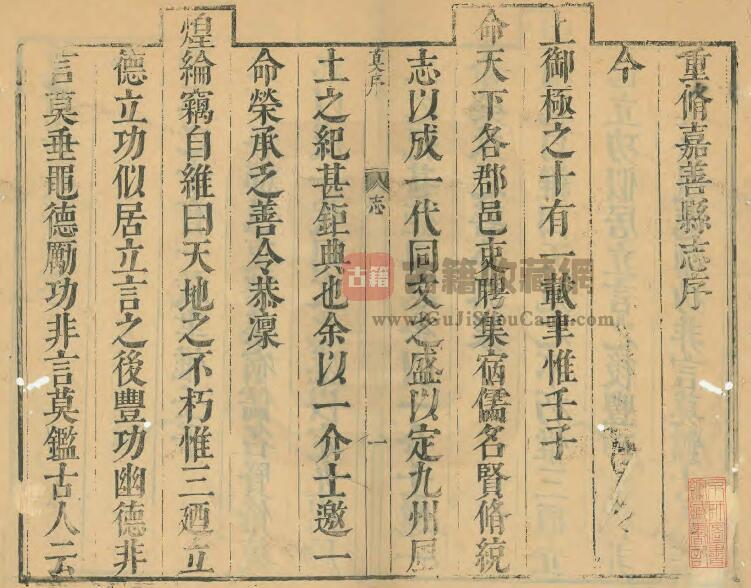 重脩嘉善縣志序
今
上御極之十有一載聿惟壬子
命天下各郡邑吏聘集宿儒名賢脩統
志以成一代同文之盛以定九州
真序
志
一
土之紀甚鉅典也余以一介士邀一
命榮承乏善令恭凜
煌綸竊自維曰天地之不朽惟三廼立
德立功似居立言之後豐功幽德非
言莫垂黽德勵功非言莫鑑古人云
古籍
古籍收藏网
www.GuJiShouCang.com